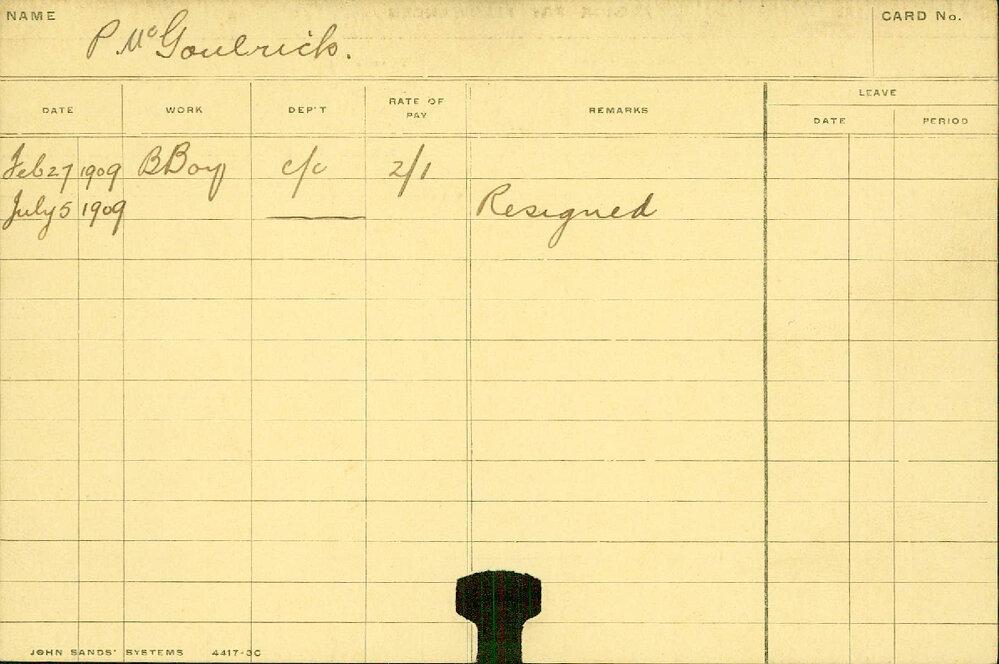 NAME
CARD No.
P. McGoulrick.
DATE WORK DEP'T RATE OF PAY REMARKS LEAVE
DATE PERIOD
Feb 27 1909 BBoy c/c 2/1
July 5 1909 Resigned
JOHN SANDS' SYSTEMS 4417-3C